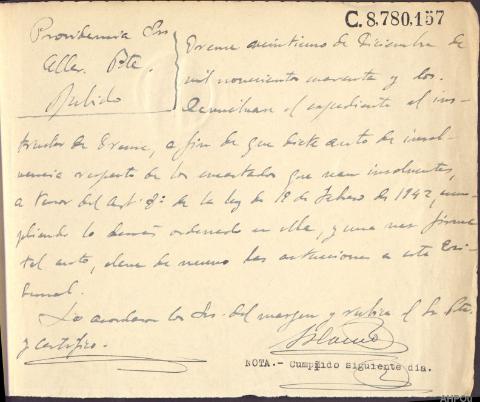 C.8.780,157
Providencia Srs
Aller. Pte.
Pulido
Orense veintiuno de Diciembre de
mil novecientos cuarenta y dos.
Devuélvase el expediente al ins-
tructor de Orense, a fin de que dicte auto de insol-
vencia respecto de los encartados que sean insolventes,
a tenor del artº 8º de la ley de 19 de Febrero de 1942, cum-
pliendo lo demás ordenado en ella, y una vez firme
tal auto, eleve de nuevo las actuaciones a este Tri-
bunal.
Lo acordaron los Srs. del margen y rubrica el Sr Pte.
y certifico.
NOTA.- Cumplido siguiente dia.